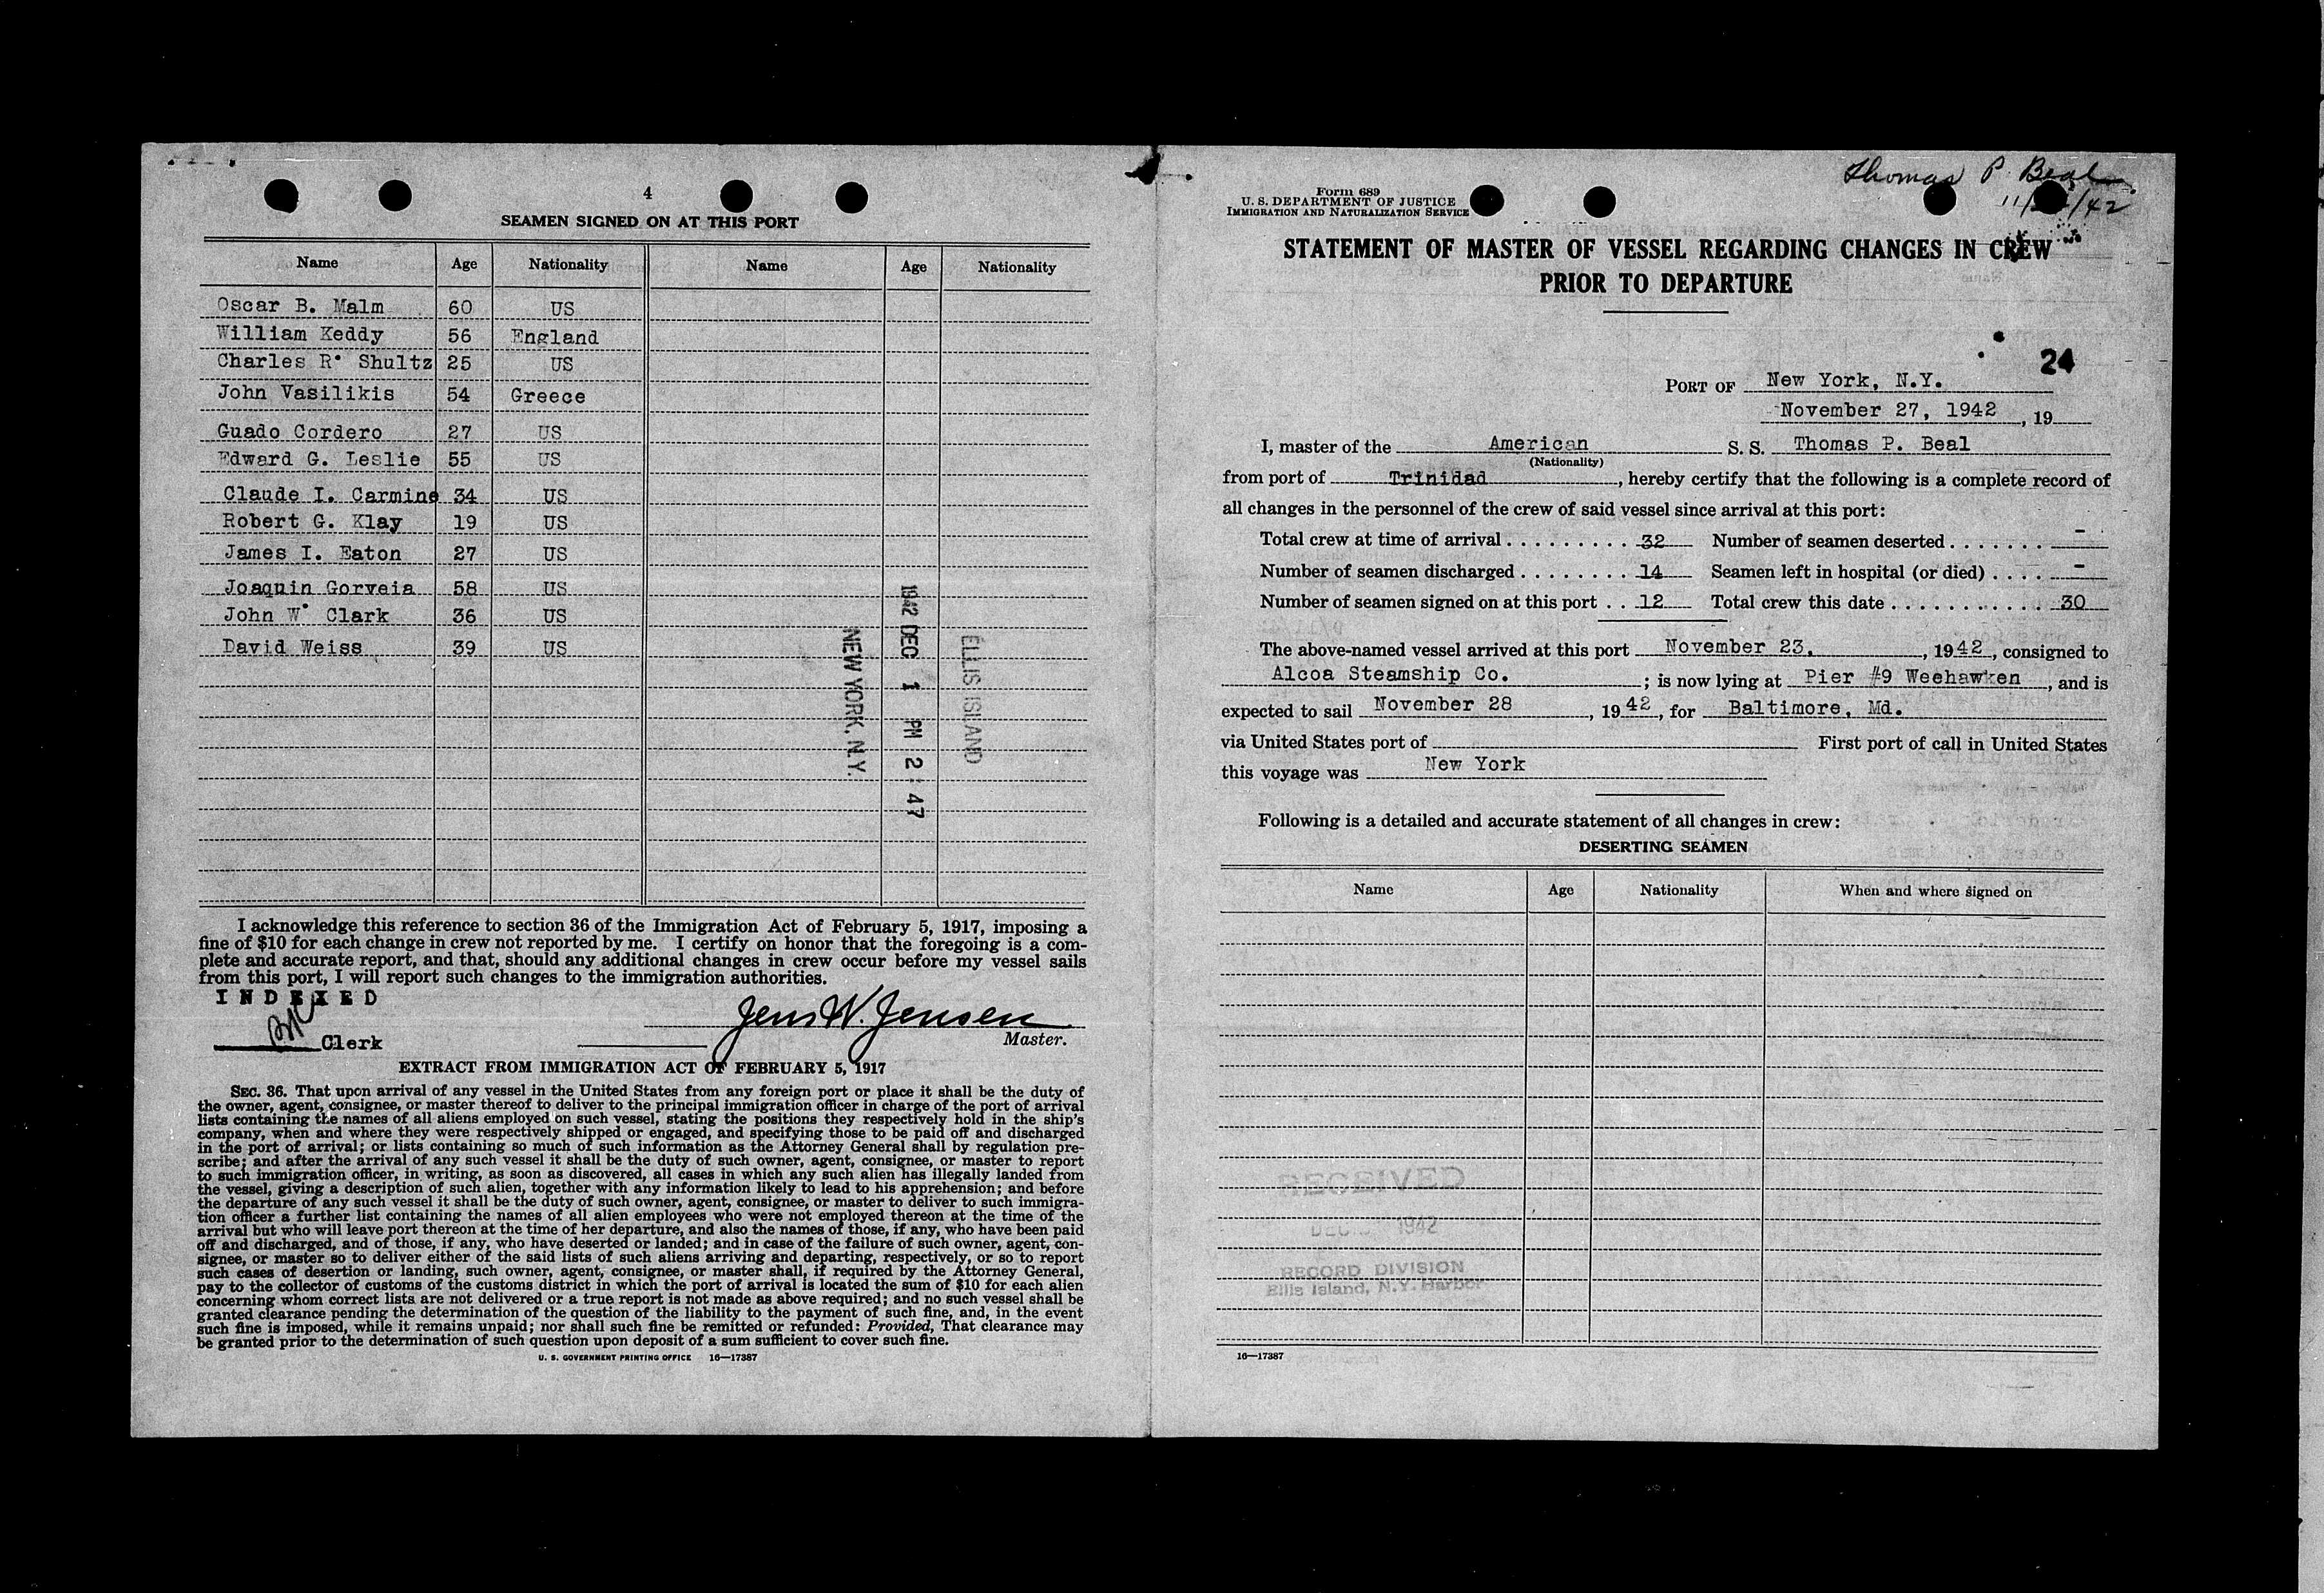 4
SEAMEN SIGNED ON AT THIS PORT
Name Age Nationality Name Age Nationality
Oscar B. Malm 60 US
William Keddy 56 England
Charles R. Shultz 25 US
John Vasilikis 54 Greece
Guado Cordero 27 US
Edward G. Leslie 55 US
Claude I. Carmine 34 US
Robert G. Klay 19 US
James I. Eaton 27 US
Joaquin Gorveia 58 US
John W. Clark 36 US
David Weiss 39 US
NEW YORK, N.Y.
1942 DEC 1 PM 2 47
ELLIS ISLAND
I acknowledge this reference to section 36 of the Immigration Act of February 5, 1917, imposing a
fine of $10 for each change in crew not reported by me. I certify on honor that the foregoing is a com-
plete and accurate report, and that, should any additional changes in crew occur before my vessel sails
from this port, I will report such changes to the immigration authorities.
INDEXED
Clerk
Jens W. Jensen
Master.
EXTRACT FROM IMMIGRATION ACT OF FEBRUARY 5, 1917
SEC. 36. That upon arrival of any vessel in the United States from any foreign port or place it shall be the duty of
the owner, agent, consignee, or master thereof to deliver to the principal immigration officer in charge of the port of arrival
lists containing the names of all aliens employed on such vessel, stating the positions they respectively hold in the ship's
company, when and where they were respectively shipped or engaged, and specifying those to be paid off and discharged
in the port of arrival; or lists containing so much of such information as the Attorney General shall by regulation pre-
scribe; and after the arrival of any such vessel it shall be the duty of such owner, agent, consignee, or master to report
to such immigration officer, in writing, as soon as discovered, all cases in which any such alien has illegally landed from
the vessel, giving a description of such alien, together with any information likely to lead to his apprehension; and before
the departure of any such vessel it shall be the duty of such owner, agent, consignee, or master to deliver to such immigra-
tion officer a further list containing the names of all alien employees who were not employed thereon at the time of the
arrival but who will leave port thereon at the time of her departure, and also the names of those, if any, who have been paid
off and discharged, and of those, if any, who have deserted or landed; and in case of the failure of such owner, agent, con-
signee, or master so to deliver either of the said lists of such aliens arriving and departing, respectively, or so to report
such cases of desertion or landing, such owner, agent, consignee, or master shall, if required by the Attorney General,
pay to the collector of customs of the customs district in which the port of arrival is located the sum of $10 for each alien
concerning whom correct lists are not delivered or a true report is not made as above required; and no such vessel shall be
granted clearance pending the determination of the question of the liability to the payment of such fine, and, in the event
such fine is imposed, while it remains unpaid; nor shall such fine be remitted or refunded: Provided, That clearance may
be granted prior to the determination of such question upon deposit of a sum sufficient to cover such fine.
U. S. GOVERNMENT PRINTING OFFICE 16—17387
Thomas P. Beal
Form 689
U. S. DEPARTMENT OF JUSTICE
IMMIGRATION AND NATURALIZATION SERVICE
STATEMENT OF MASTER OF VESSEL REGARDING CHANGES IN CREW
PRIOR TO DEPARTURE
24
PORT OF New York, N.Y.
November 27, 1942, 19
I, master of the American S. S. Thomas P. Beal
(Nationality)
from port of Trinidad, hereby certify that the following is a complete record of
all changes in the personnel of the crew of said vessel since arrival at this port:
Total crew at time of arrival . . . . . . . . . 32 Number of seamen deserted . . . . . . . -
Number of seamen discharged . . . . . . . . 14 Seamen left in hospital (or died) . . . . -
Number of seamen signed on at this port . . 12 Total crew this date . . . . . . . . . . . . 30
The above-named vessel arrived at this port November 23, 1942, consigned to
Alcoa Steamship Co. ; is now lying at Pier #9 Weehawken, and is
expected to sail November 28, 1942, for Baltimore, Md.
via United States port of First port of call in United States
this voyage was New York
Following is a detailed and accurate statement of all changes in crew:
DESERTING SEAMEN
Name Age Nationality When and where signed on
RECEIVED
DEC 1942
RECORD DIVISION
Ellis Island, N.Y. Harbor
16—17387